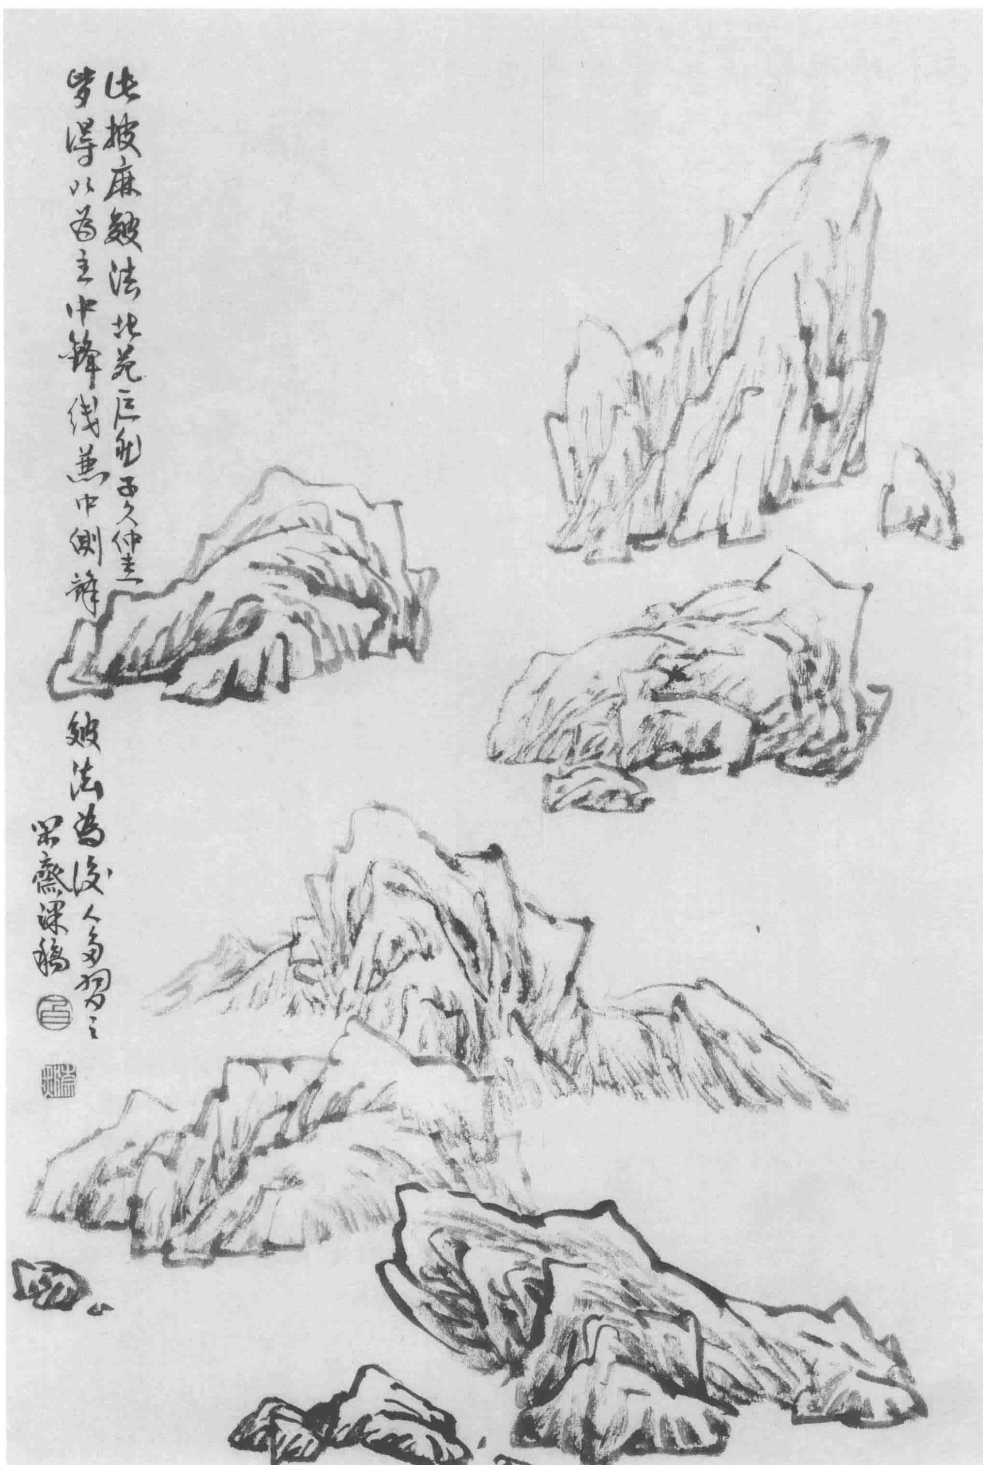 此披麻皴法北苑巨然子久仲圭
皆得以为主中锋线兼中侧锋
皴法為後人多習之
齋課稿